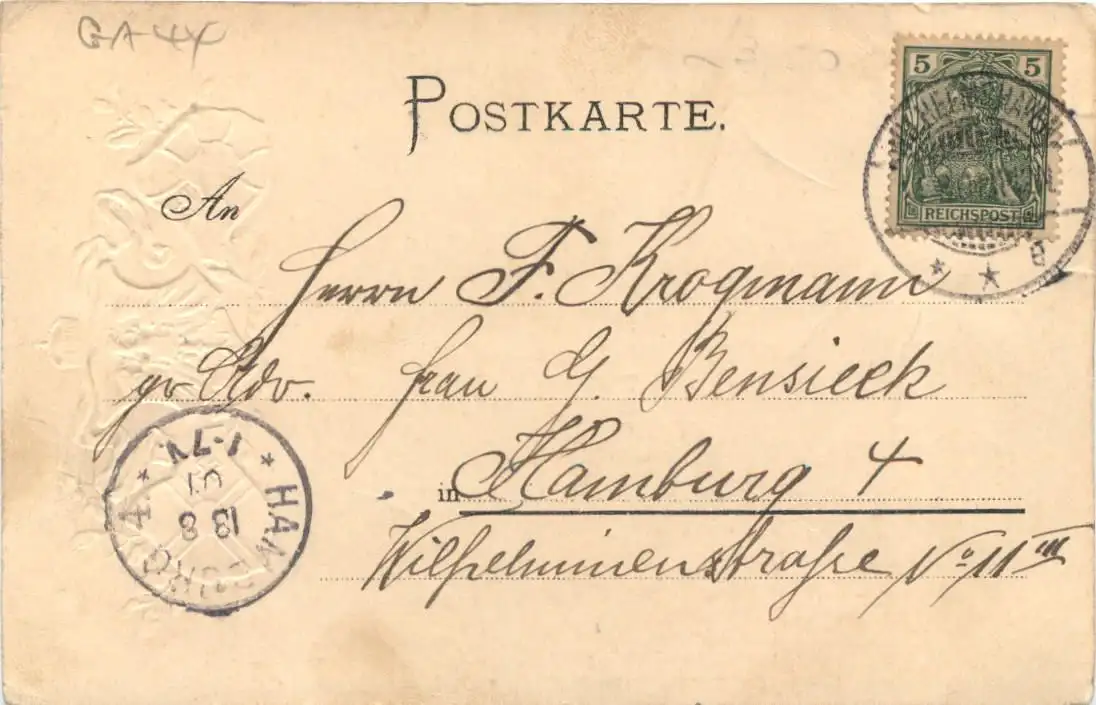 GA 44
POSTKARTE.
5 5
REICHSPOST
An
Herrn F. Krogmann
pr Adr. Frau G. Bensieck
in Hamburg 4
Wilhelminenstraße No 11 III
HAMBURG 4.
13 8
01
1-7N.